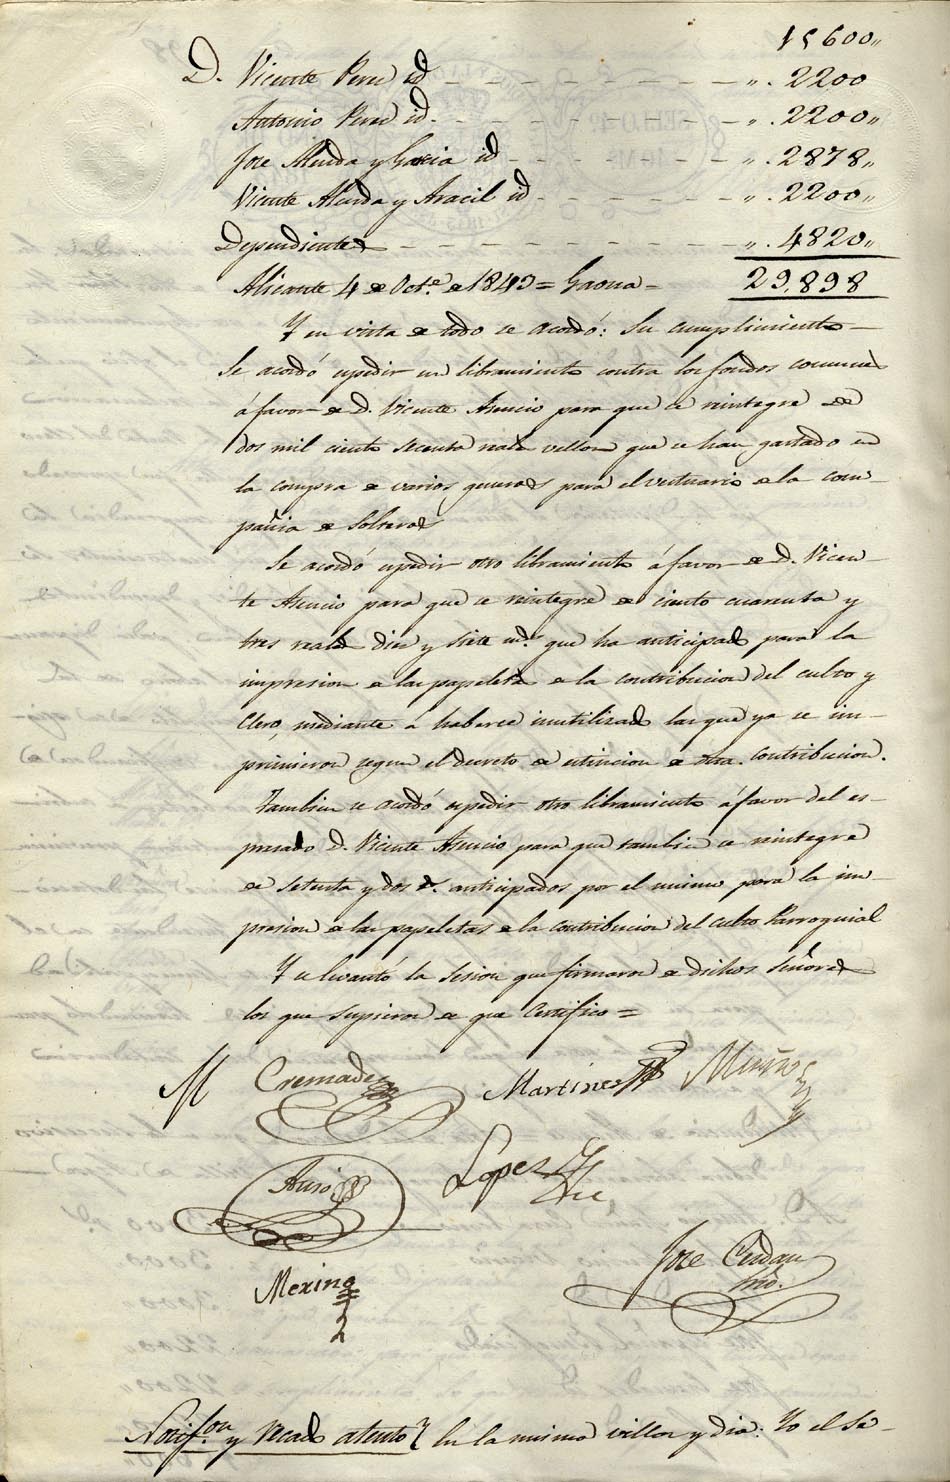 15600,,
D. Vicente Perez id ,, . 2200
Antonio Perez id. ,, . 2200,,
Jose Alenda y Garcia id ,, . 2878,,
Vicente Alenda y Aracil id ,, . 2200,,
Dependientes ,, . 4820,,
Alicante 4 de Oct.e de 1843 = Gaona = 29.898
Y en vista de todo se acordó: Su cumplimiento
Se acordó espedir un libramiento contra los fondos comunes
á favor de D. Vicente Asencio para que se reintegre de
dos mil ciento secenta reales vellon que se han gastado en
la compra de varios generos para el vestuario de la com-
pañia de Solteros
Se acordó espedir otro libramiento á favor de D. Vicen-
te Asencio para que se reintegre de ciento cuarenta y
tres reales diez y siete mds. que ha anticipado para la
impresion de las papeletas de la contribucion del culto y
Clero, mediante á haberse inutilizado las que ya se im-
primieron segun el decreto de estincion de otra contribucion.
Tambien se acordó espedir otro libramiento á favor del es-
presado D. Vicente Asencio para que tambien se reintegre
de setenta y dos r.s anticipados por el mismo para la im-
presion de las papeletas de la contribucion del culto Parroquial
Y se levantó la sesion que firmaron de dichos Señores
los que supieron de que Certifico =
M Cremades Martinez Muñoz
Lopez
Merino
Jose Cerdan
Srio.
Notif.on y Recado atento En la misma villa y dia: Yo el Se-